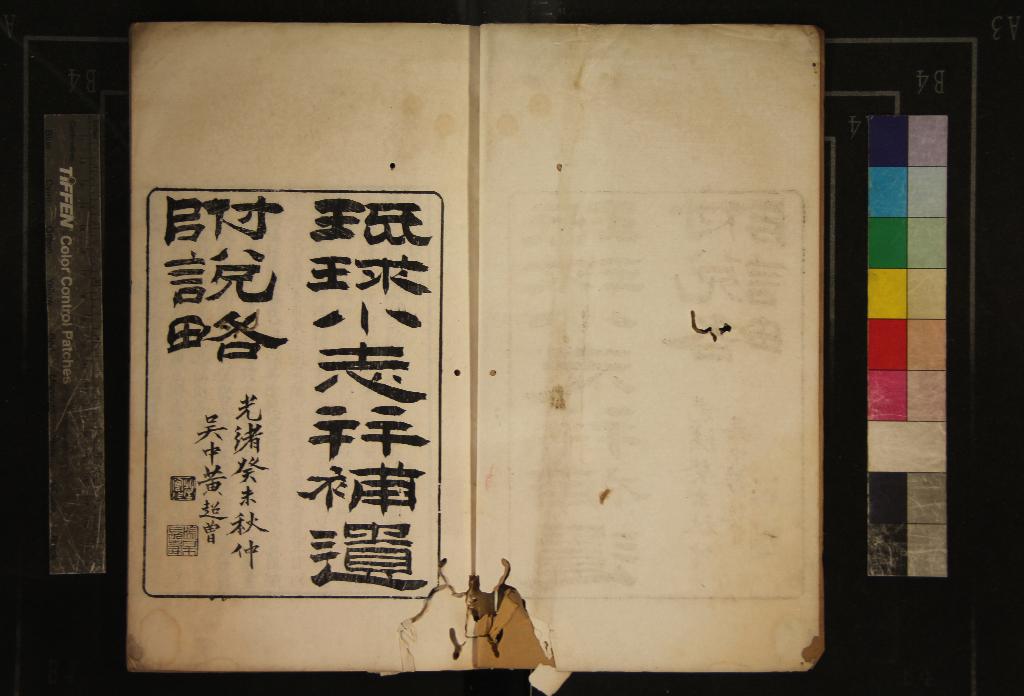 琉球小志幷補遺
附說略
光緒癸未秋仲
吳中黃超曾
TIFFEN Color Control Patches
B4
B4
A3
A4